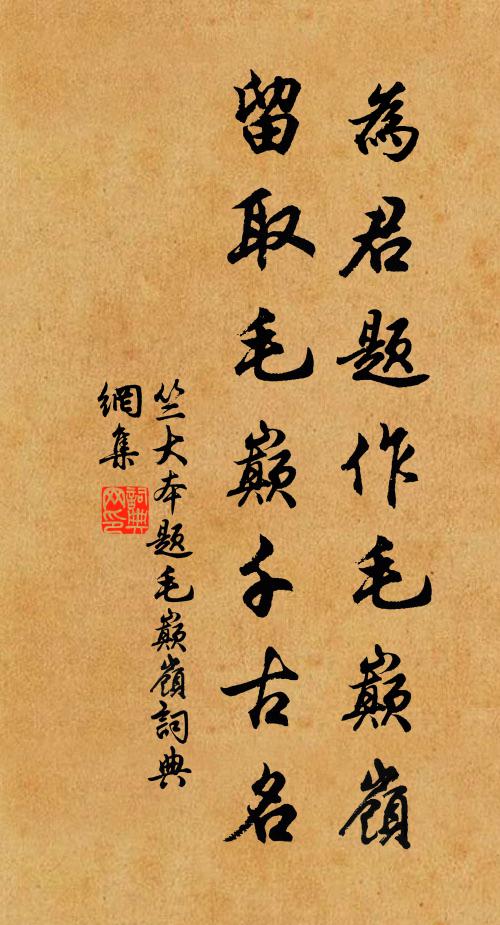 為君題作毛巔嶺
留取毛巔千古名
竺大本題毛巔嶺詞典
網集
詞典
网印